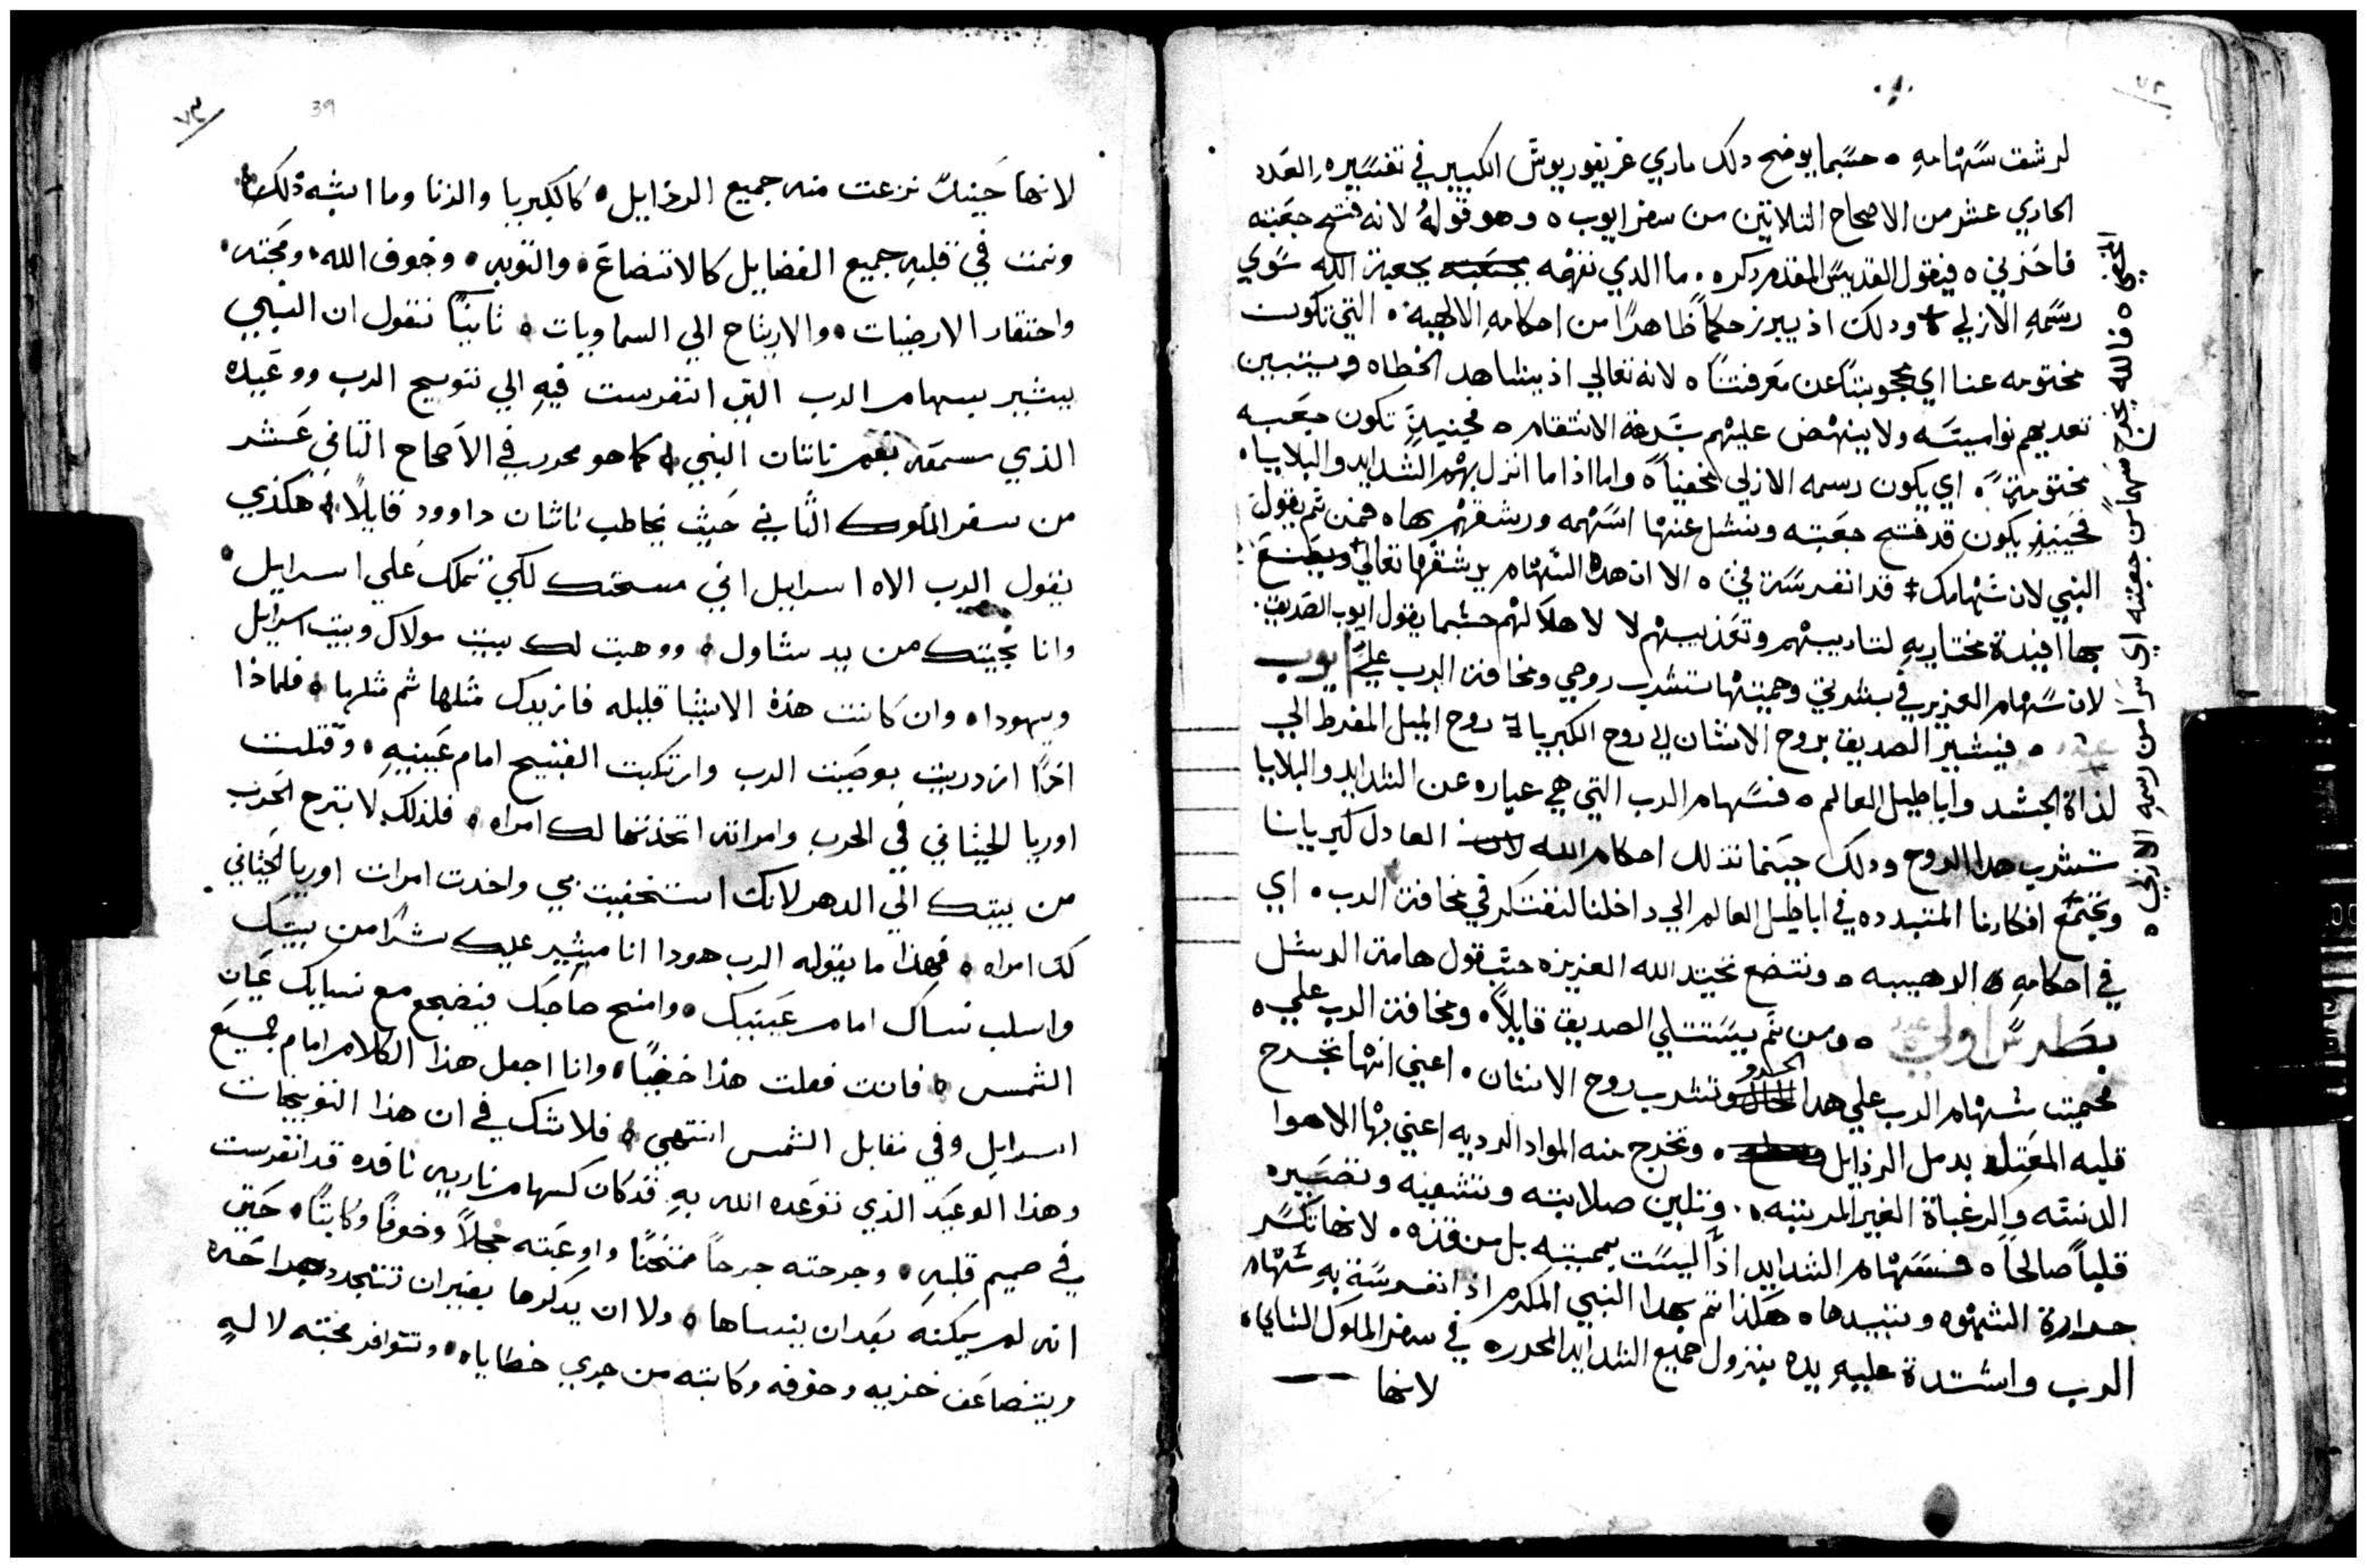 ٧٢
لرشقت سَهامهِ ٥ حسَبما يوضح دلك ماري غريغوريوسَ الكبير في تفسَيرهِ العَدد
الحادي عشر من الاصحاح التلاتين من سفر ايوب ٥ وهو قولهُ لانه فتح جعَبته
فاحَزني ٥ فيقول القديسَ المقدم دكره ٥ ما الدي نفهمَه بجعبة الله سَوي
رسَمهِ الازلي ودلك اذ يبرز حكماً ظاهراً من احكامهِ الالهية ٥ التي تكون
مختومه عنا اي محجوبتاً عن معَرفتناَ ٥ لانه تعالي اذ يشاهد الخطاه ويتبين
تعديهم نواميسَه ولا ينهض عليهم بسَرعة الانتقام ٥ فحينيذٍ تكون جعَبه
مختومةً ٥ اي يكون رسمه الازلي مخفياً ٥ واما اذا ما انزل بهمَ الشدايد والبلايا ٥
فحَينيذٍ يكون قد فتح جعَبته ونشل عنها اسَهمه ورشقهمَ بها ٥ فمن تم يقول
النبي لان سَهامك قد انغرسَة فيَ ٥ الا ان هده السَهام يرشقها تعالي ويصَنع
بها افيدة مختاريهِ لتاديبهم وتعَذيبهم لا لاهلاَكهمَ حسَبما يقول ايوب الصَديق
لان سَهام العزيز في بشرتي وحميتها تشرب روحي ومخافة الرب عليَّ ايوب
٥ فيشير الصديق بروح الانسَان الي روح الكبريا روح الميل المفرط الي
لذاة الجسَد واباطيل العالم ٥ فسَهام الرب التي هي عباره عن الشدايد والبلايا
تشرب هدا الروح ودلك حينما تذلل احكام الله العادل كبريانا
وتجتمَع افكارنا المتبدده في اباطيل العالم الي داخلنا لنفتكر في مخافة الرب ٥ اي
في احكامهِ الرهيبه ٥ ونتضع تحت يد الله العزيزه حسَب قول هامة الرسَل
بطرسَ اولي ٥ ومن تم يسَتتلي الصديق قايلاً ٥ ومخافة الرب علي ٥
فحميت سَهام الرب علي هدا الحدو وتشرب روح الانسَان ٥ اعني انها تجرح
قلبه المعَتل بدمل الرذايل ٥ وتخرج منه المواد الرديه اعني بها الاهوا
الدنسَه والرغباة الغير المرتبه ٥ وتلين صلابته وتشفيه وتصَيره
قلباً صالحاً ٥ فسَهام الشدايد اذاً ليسَت بمميته بل منقذه ٥ لانها تكسَر
حرارة الشهوه وتبيدها ٥ هَكذا تم بهدا النبي المكرم اذ انغرسَة بهِ سَهام
الرب واشتدة عليهِ يده بنزول جميع الشدايد المحرره في سفر الملوك التاني ٥
لانها
٥ فالله يخرج سَهماً من جعَبته اي سَراً من رسمه الازلي ٥
٧٣
39
لانها حَينيذٍ نزعت منه جميع الرذايل ٥ كالكبريا والزنا وما اشبه ذلك ٥
ونمت في قلبهِ جميع الفضايل كالاتضاعَ ٥ والتوبه ٥ وخوف الله ٥ ومحَبته ٥
واحتقار الارضيات ٥ والارتياح الي السماويات ٥ ثانياً نقول ان النبي
يشير بسهام الرب التي انغرست فيهِ الي توبيخ الرب ووعَيده
الذي سمعَه بفم ناتان النبي كما هو محرر في الاَصحاح التاني عَشر
من سفر الملوك الثاني حَيث يخاطب ناثان داوود قايلاً هكذي
يقول الرب الاه اسرايل اني مسحتك لكي تملك عَلي اسرايل ٥
وانا نجيَتك من يد شاول ٥ ووهبت لك بيت مولاك وبيت اسرايل
ويهودا ٥ وان كانت هذه الاشيا قليله فازيدك مثلها ثم مثلها ٥ فلماذا
اذاً ازدريت بوصَيت الرب وارتكبت القبيح امام عَينيهِ ٥ وقتلت
اوريا الحيثاني في الحرب وامراته اتخذتها لك امراه ٥ فلذلك لا يبرح الحرب
من بيتك الي الدهر لانك استخفيت بي واخدت امرات اوريا الحيثاني
لك امراه ٥ فهذا ما يقوله الرب هودا انا ميثير عليك شراً من بيتك
واسلب نساك امام عَينيك ٥ وامنح صاحبك فيضجع مع نسايك عَيان
الشمس ٥ فانت فعلت هذا خفياً ٥ وانا اجعل هذا الكلام امام جميعَ
اسرايل وفي مقابل الشمس انتهي ٥ فلا شك في ان هذا التوبيخات
وهذا الوعَيد الذي توعَده الله بهِ قد كان كسهام ناريه نافده قد انغرست
في صميم قلبهِ ٥ وجرحته جرحاً مثخناً واوعَبته خجلاً وخوفاً وكابتاً ٥ حَتي
انه لم يمكنهَ بعَد ان ينساها ٥ ولا ان يدكرها بغير ان تتجدد جراحَه
ويتضاعَف حزنه وخوفه وكابته من جري خطاياه ٥ وتتوافر محبته لالههِ